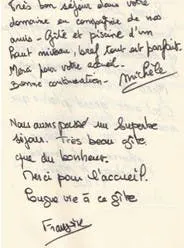 Très bon séjour dans votre
domaine en compagnie de nos
amis - Gîte et piscine d'un
haut niveau, bref tout est parfait.
Merci pour votre accueil.
Bonne continuation - Michèle
Nous avons passé un superbe
séjour. Très beau gîte
que du bonheur.
Merci pour l'accueil.
Longue vie à ce gîte